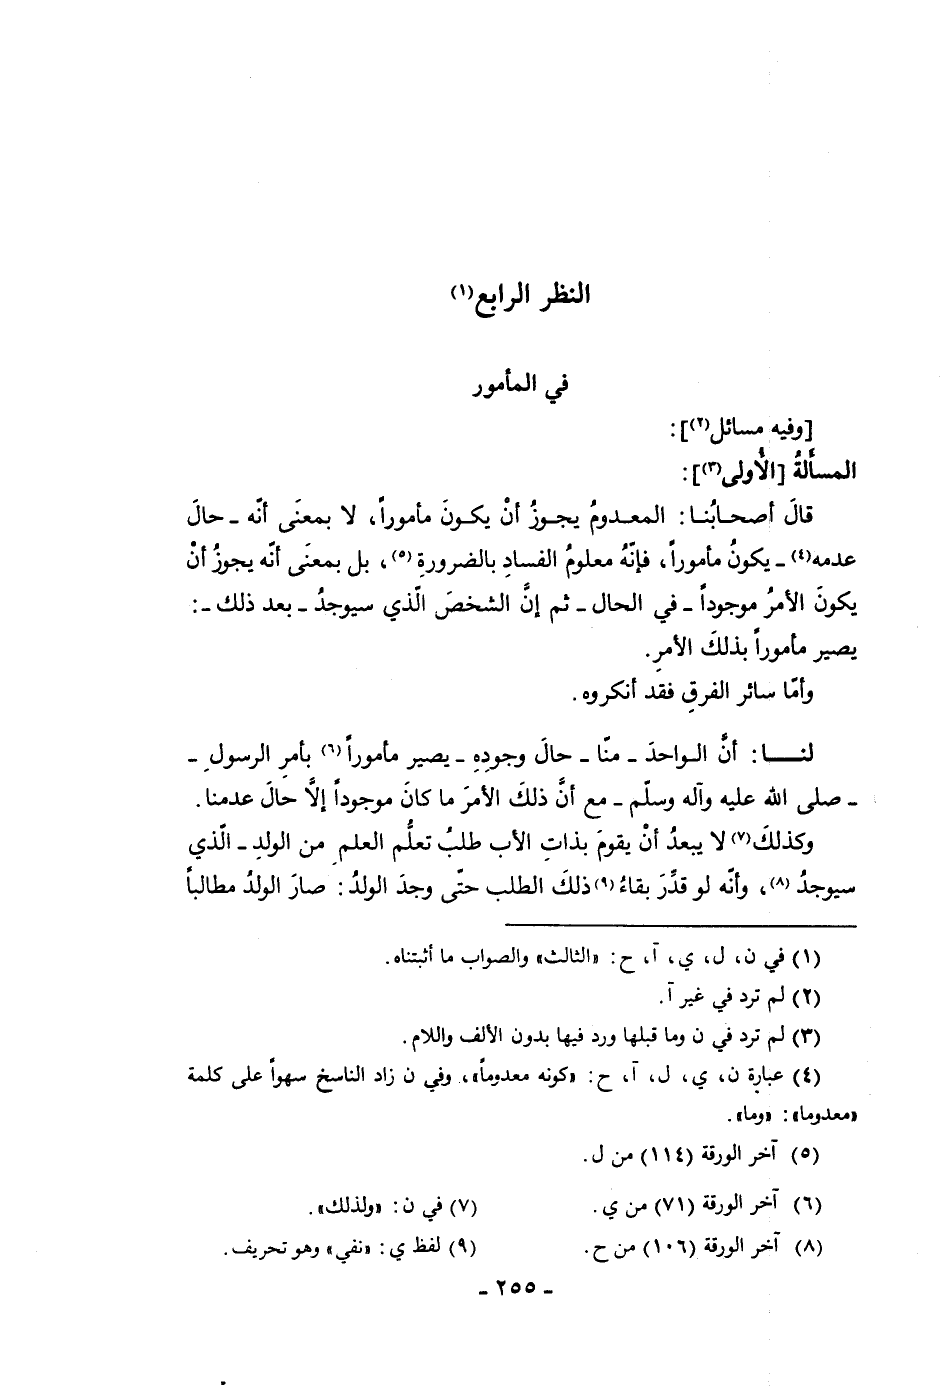 النظر الرابع(١)
في المأمور
[وفيه مسائل(٢)]:
المسألةُ [الأُولى(٣)]:
قالَ أصحابُنا: المعدومُ يجوزُ أنْ يكونَ مأموراً، لا بمعنَى أنّه ـ حالَ
عدمه(٤) ـ يكونُ مأموراً، فإنّهُ معلومُ الفسادِ بالضرورةِ(٥)، بل بمعنَى أنّه يجوزُ أنْ
يكونَ الأمرُ موجوداً ـ في الحال ـ ثم إنَّ الشخصَ الّذي سيوجدُ ـ بعد ذلك ـ:
يصير مأموراً بذلكَ الأمرِ.
وأمّا سائر الفرقِ فقد أنكروه.
لنــا: أنَّ الواحدَ ـ منّا ـ حالَ وجودِهِ ـ يصير مأموراً(٦) بأمرِ الرسولِ ـ
ـ صلى الله عليه وآله وسلّم ـ مع أنَّ ذلكَ الأمرَ ما كانَ موجوداً إلَّا حالَ عدمنا.
وكذلكَ(٧) لا يبعدُ أنْ يقومَ بذاتِ الأب طلبُ تعلُّم العلمِ من الولدِ ـ الّذي
سيوجدُ(٨)، وأنّه لو قدِّرَ بقاءُ(٩) ذلكَ الطلب حتّى وجدَ الولدُ: صارَ الولدُ مطالباً
(١) في ن، ل، ي، آ، ح: «الثالث» والصواب ما أثبتناه.
(٢) لم ترد في غير آ.
(٣) لم ترد في ن وما قبلها ورد فيها بدون الألف واللام.
(٤) عبارة ن، ي، ل، آ، ح: «كونه معدوماً»، وفي ن زاد الناسخ سهواً على كلمة
«معدوما»: «وما».
(٥) آخر الورقة (١١٤) من ل.
(٦) آخر الورقة (٧١) من ي.
(٧) في ن: «ولذلك».
(٨) آخر الورقة (١٠٦) من ح.
(٩) لفظ ي: «نفي» وهو تحريف.
ـ ٢٥٥ ـ